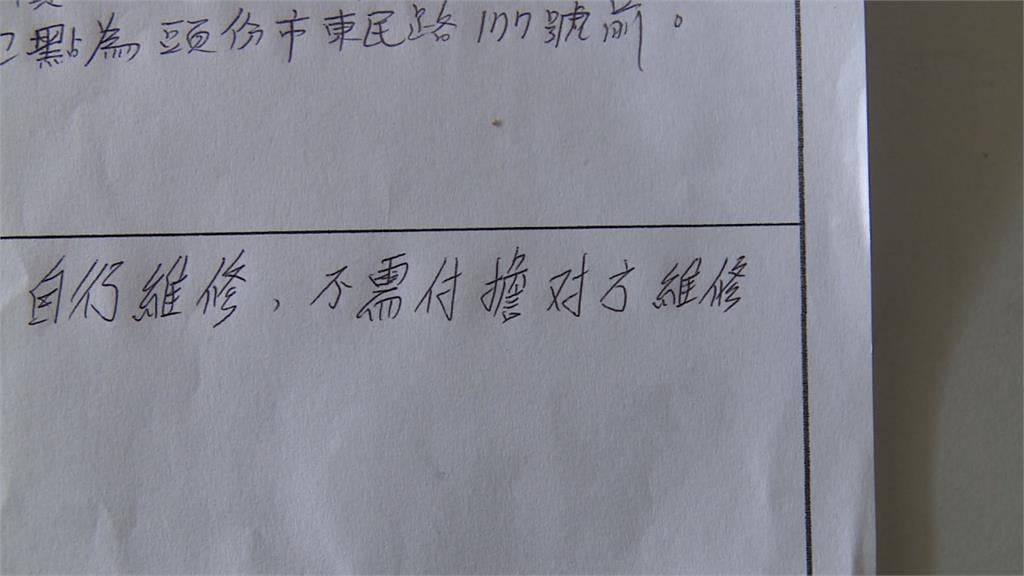 點為頭份市東民路177號前。
自行維修，不需付擔对方維修